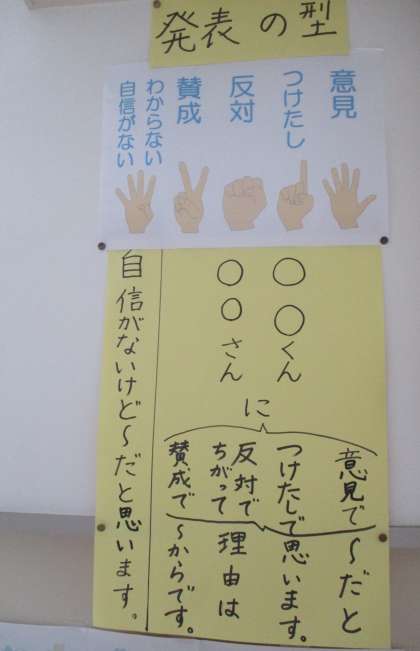 発表の型
意見
つけたし
反対
賛成
わからない
自信がない
○○くん
○○さん
に
意見で
つけたしで
反対で
ちがって
賛成で
～だと
思います。
理由は
～からです。
自信がないけど～だと思います。